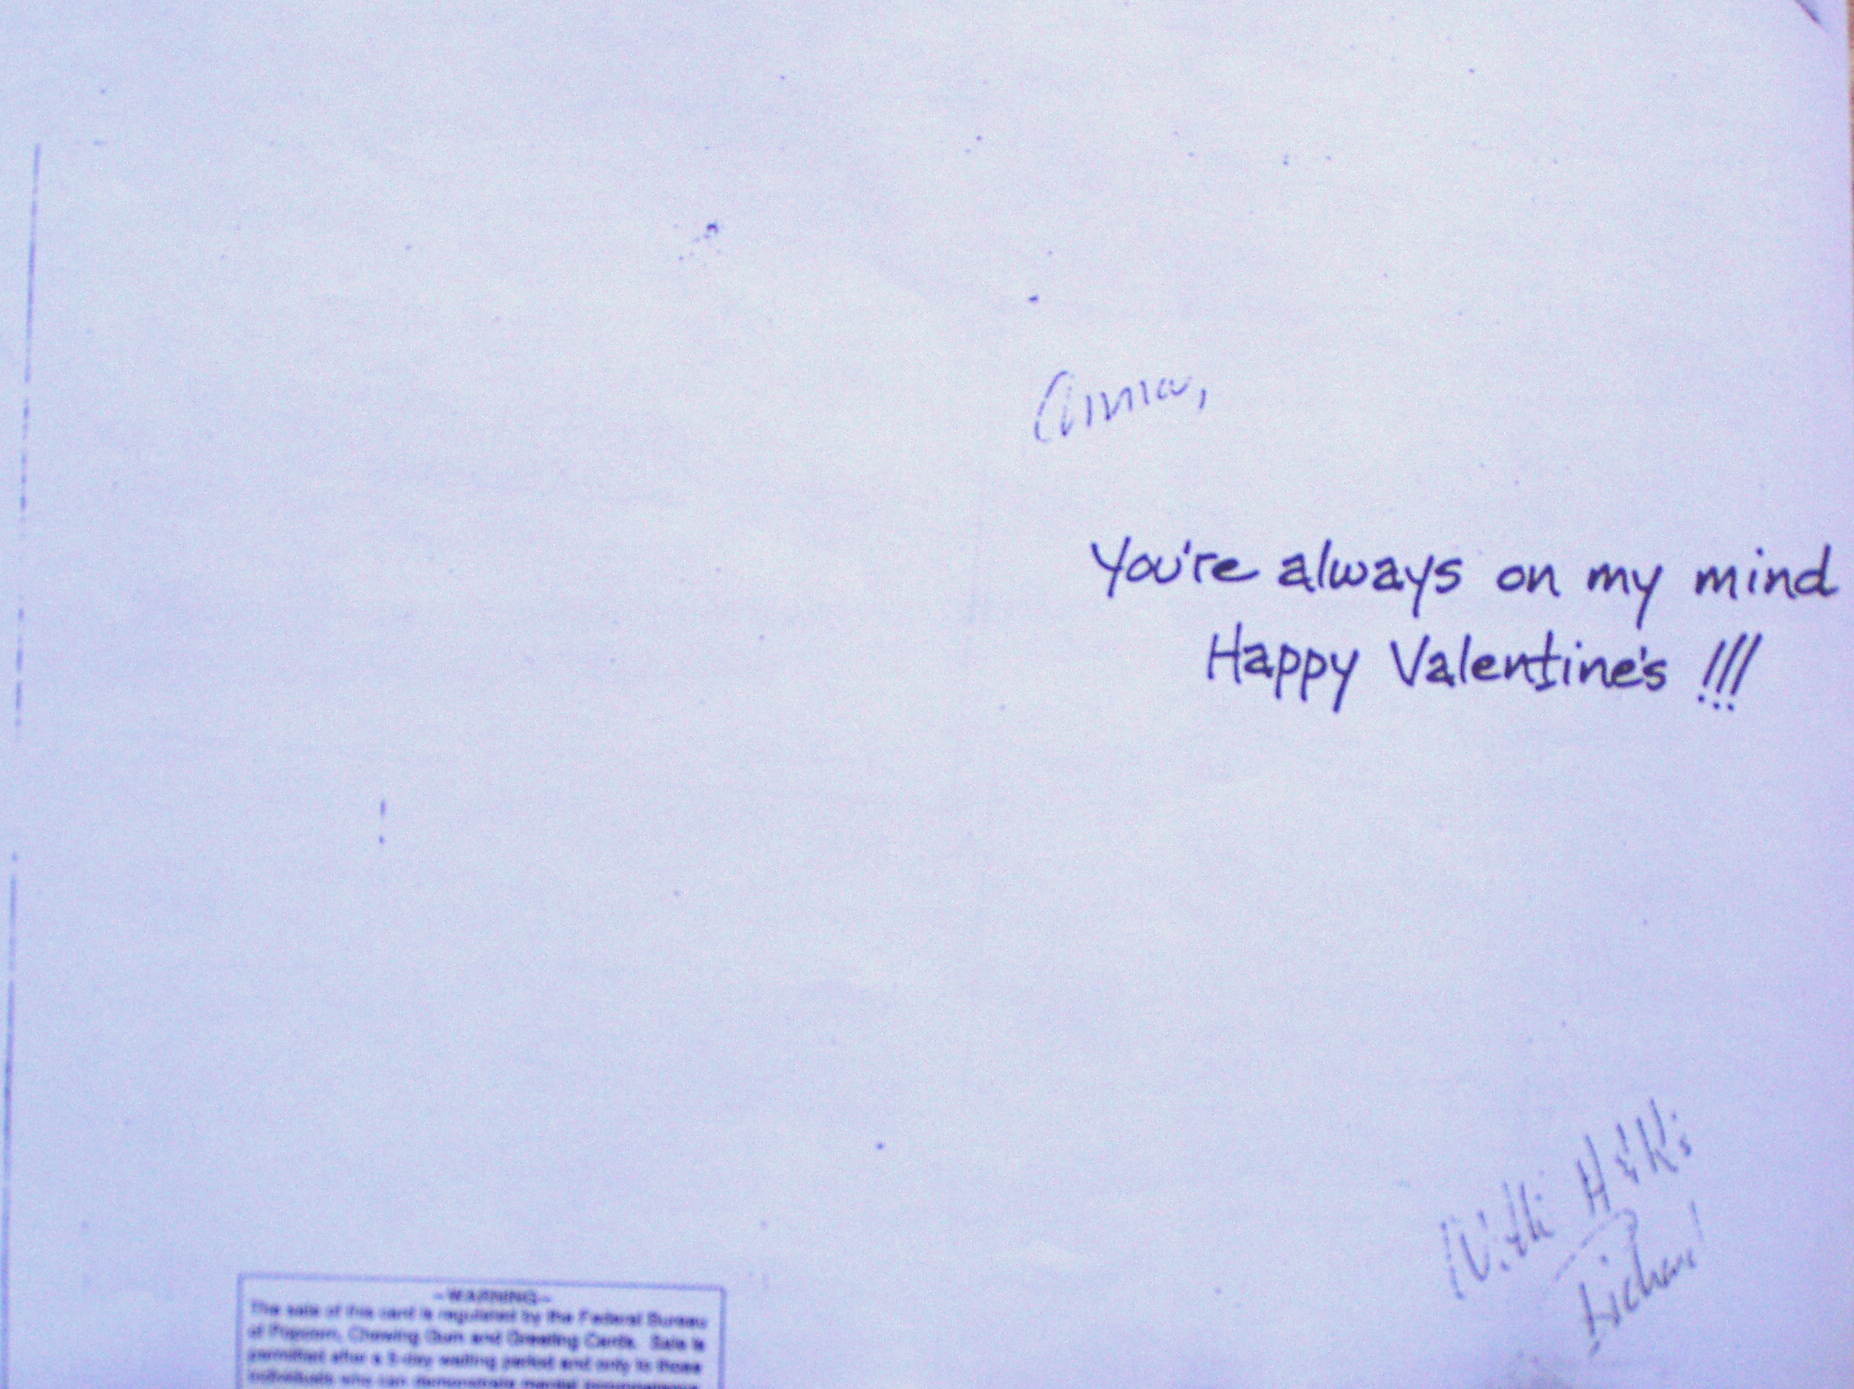 Anna,
You're always on my mind
Happy Valentine's !!!
With H & K's
Richard
-WARNING-
The sale of this card is regulated by the Federal Bureau
of Popcorn, Chewing Gum and Greeting Cards. Sale is
permitted after a 5-day waiting period and only to those
individuals who can demonstrate mental